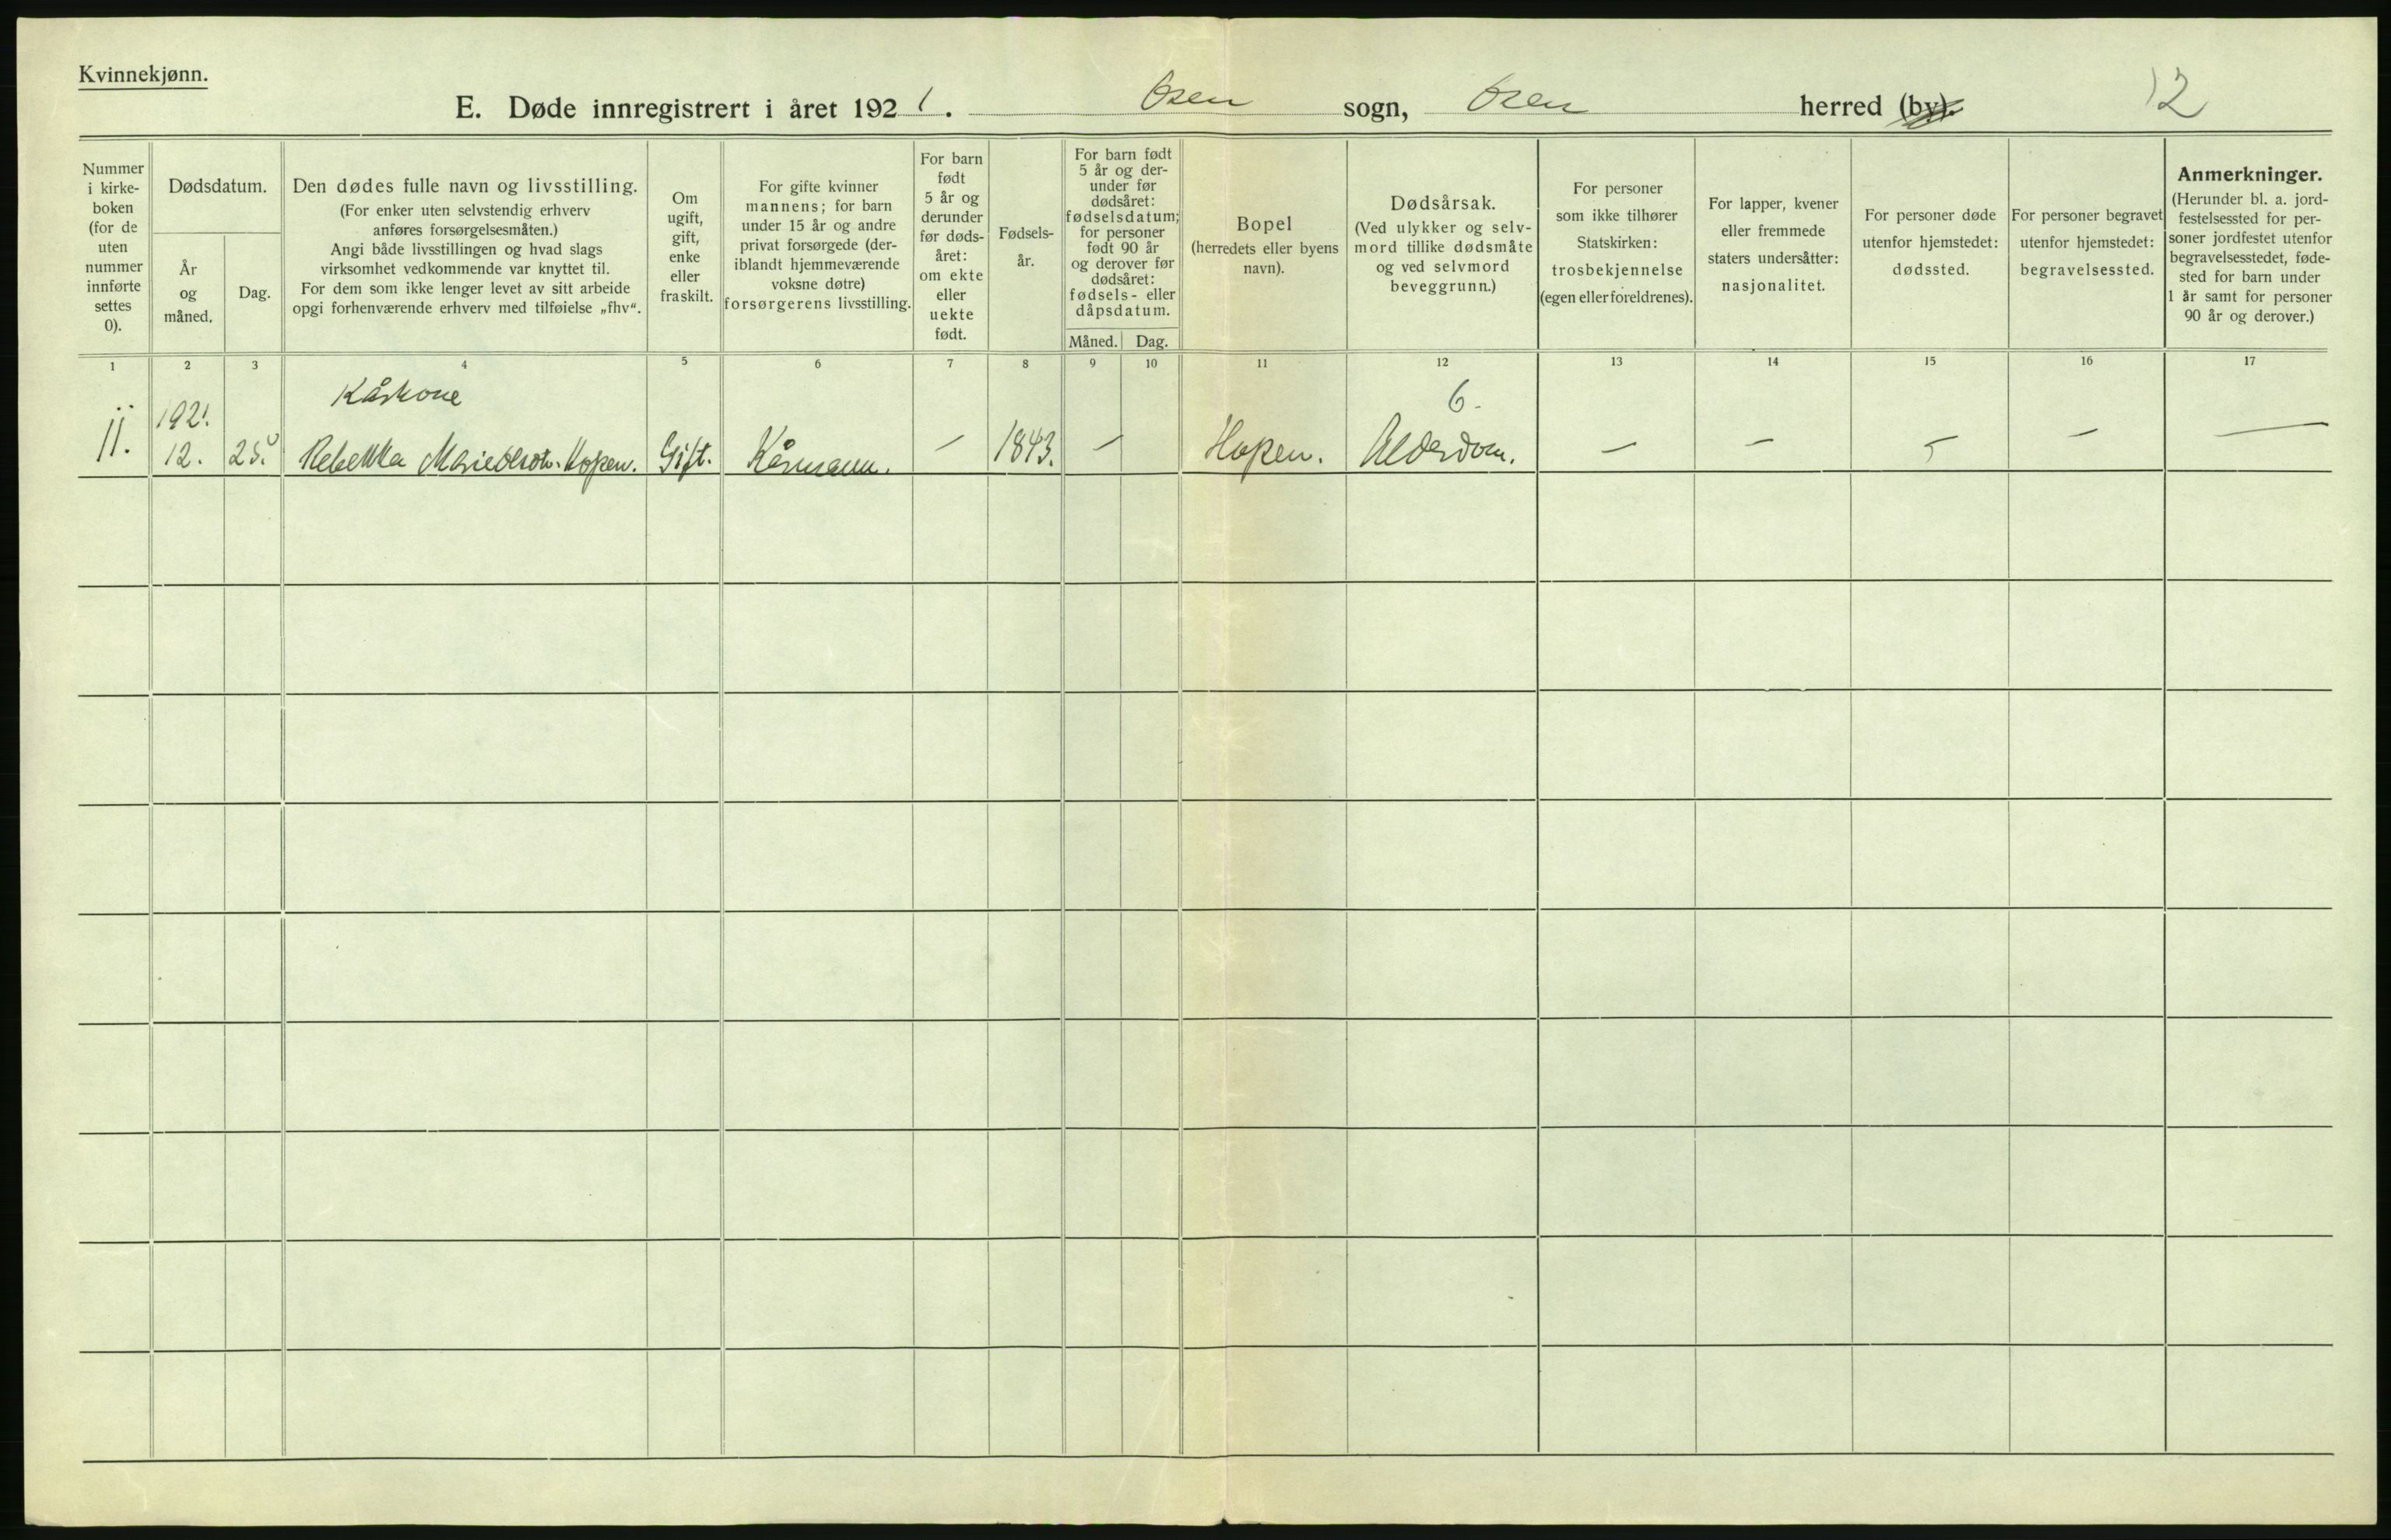 Kvinnekjønn.
E. Døde innregistrert i året 1921. Osen sogn, Osen herred (by). 12
Nummer
i kirke-
boken
(for de
uten
nummer
innførte
settes
0).
Dødsdatum.
År
og
måned.
Dag.
Den dødes fulle navn og livsstilling.
(For enker uten selvstendig erhverv
anføres forsørgelsesmåten.)
Angi både livsstillingen og hvad slags
virksomhet vedkommende var knyttet til.
For dem som ikke lenger levet av sitt arbeide
opgi forhenværende erhverv med tilføielse „fhv“.
Om
ugift,
gift,
enke
eller
fraskilt.
For gifte kvinner
mannens; for barn
under 15 år og andre
privat forsørgede (der-
iblandt hjemmeværende
voksne døtre)
forsørgerens livsstilling.
For barn
født
5 år og
derunder
før døds-
året:
om ekte
eller
uekte
født.
Fødsels-
år.
For barn født
5 år og der-
under før
dødsåret:
fødselsdatum;
for personer
født 90 år
og derover før
dødsåret:
fødsels- eller
dåpsdatum.
Måned. Dag.
Bopel
(herredets eller byens
navn).
Dødsårsak.
(Ved ulykker og selv-
mord tillike dødsmåte
og ved selvmord
beveggrunn.)
For personer
som ikke tilhører
Statskirken:
trosbekjennelse
(egen eller foreldrenes).
For lapper, kvener
eller fremmede
staters undersåtter:
nasjonalitet.
For personer døde
utenfor hjemstedet:
dødssted.
For personer begravet
utenfor hjemstedet:
begravelsessted.
Anmerkninger.
(Herunder bl. a. jord-
festelsessted for per-
soner jordfestet utenfor
begravelsesstedet, føde-
sted for barn under
1 år samt for personer
90 år og derover.)
1 2 3 4 5 6 7 8 9 10 11 12 13 14 15 16 17
1921 Kårkone 6.
11. 12. 25. Rebekka Marie Olsdtr. Hopen. Gift. Kårmann. — 1843. — Hopen. Alderdom. — — — — —